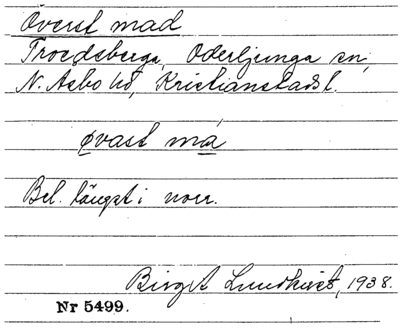 Överst mad
Troedsberga, Oderljunga sn,
N. Åsbo hd, Kristianstads l.
øvast má
Bel. längst i norr.
Birgit Lundkvist, 1938.
Nr 5499.